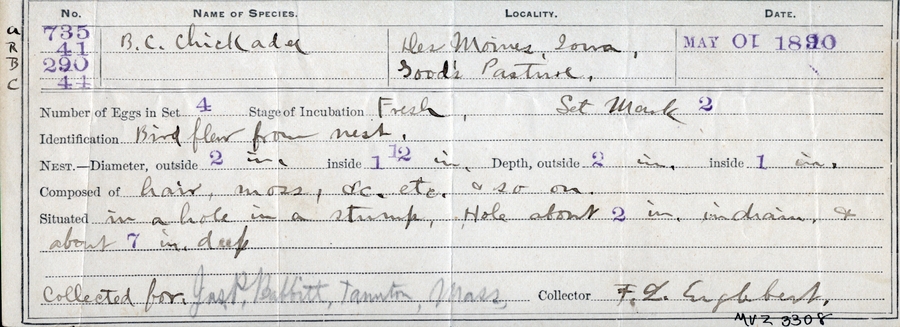 No. NAME OF SPECIES. LOCALITY. DATE.
a 735 B.C. Chickadee Des Moines, Iowa, MAY 01 1890
R 41
B 290 Good's Pasture.
C 44
Number of Eggs in Set 4 Stage of Incubation Fresh, Set Mark 2
Identification Bird flew from nest.
NEST.—Diameter, outside 2 in. inside 1 1/2 in. Depth, outside 2 in. inside 1 in.
Composed of hair, moss, &c. etc. & so on.
Situated in a hole in a stump, Hole about 2 in. in diam. &
about 7 in. deep
Collected for. Jas. P. Babbitt, Taunton, Mass. Collector F. L. Englebert.
MVZ 3308